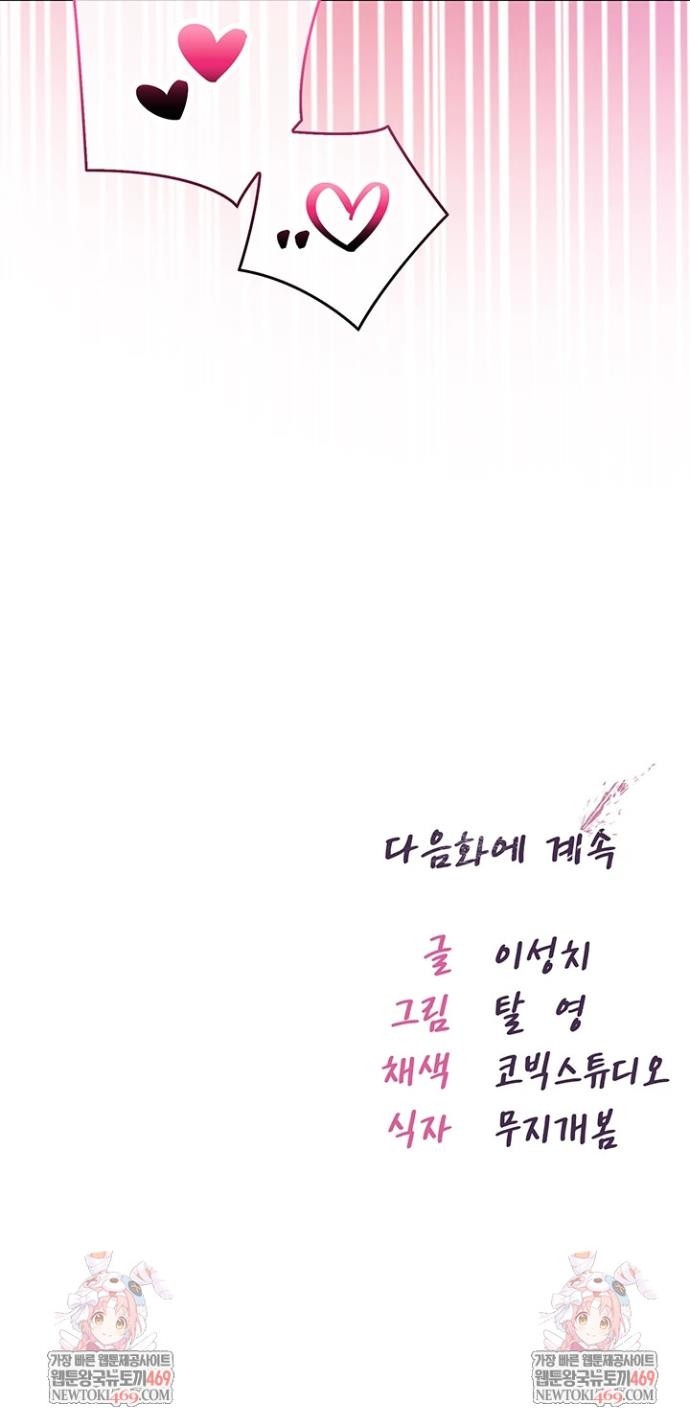 다음화에 계속
글 이성치
그림 탈 영
채색 코빅스튜디오
식자 무지개봄
가장 빠른 웹툰제공사이트
웹툰왕국뉴토끼469
NEWTOKI469.COM
가장 빠른 웹툰제공사이트
웹툰왕국뉴토끼469
NEWTOKI469.COM